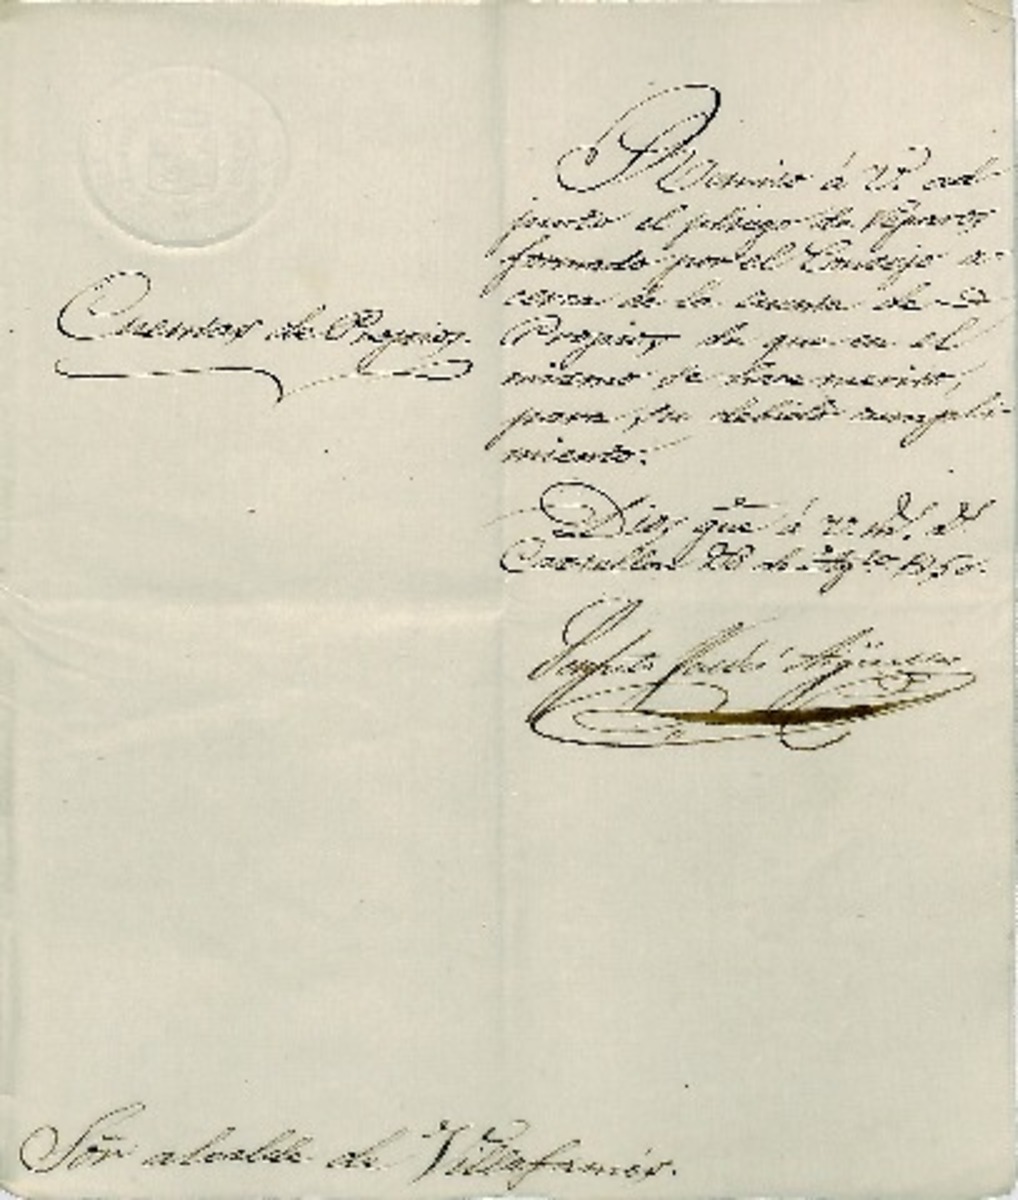 Cuentas de Propios.
Remito á V. ad-
junto el pliego de reparos
formado por el Consejo a-
cerca de la cuenta de
Propios, de que en el
mismo se hace merito,
para su debido cumpli-
miento.
Dios gue á V. m.s a.s
Castellon 28 de Ag.to 1850.
Sor alcalde de Villafamés.